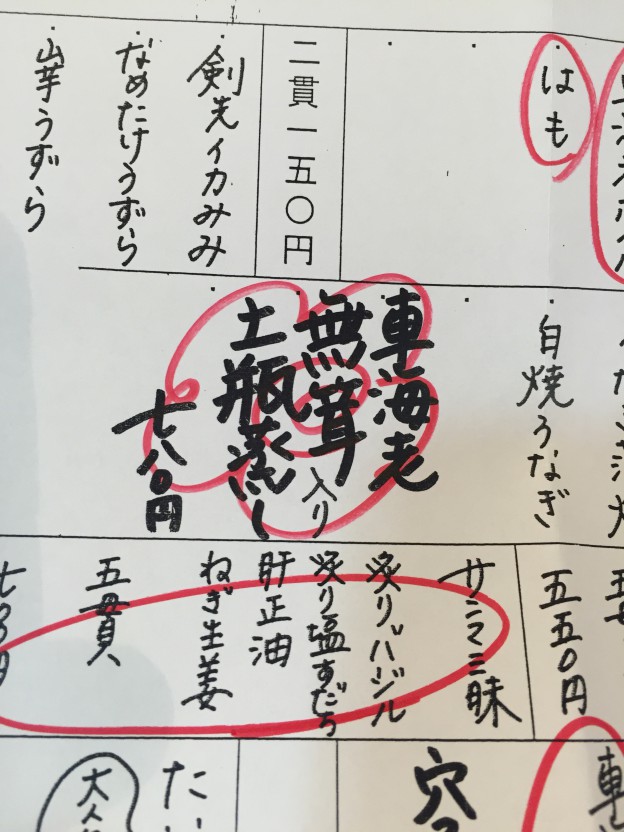 はも
二貫一五〇円
剣先イカみみ
なめたけうずら
山芋うずら
白焼うなぎ
車海老
無茸入り
土瓶蒸し
七八〇円
五五〇円
サンマ三昧
炙りバジル
炙り塩すだち
肝正油
ねぎ生姜
五貫
穴
た